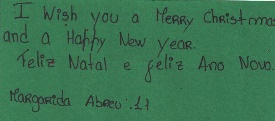 I Wish you a MERRY Christmas
and a Happy New year.
Feliz Natal e feliz Ano Novo.
Margarida Abreu :11